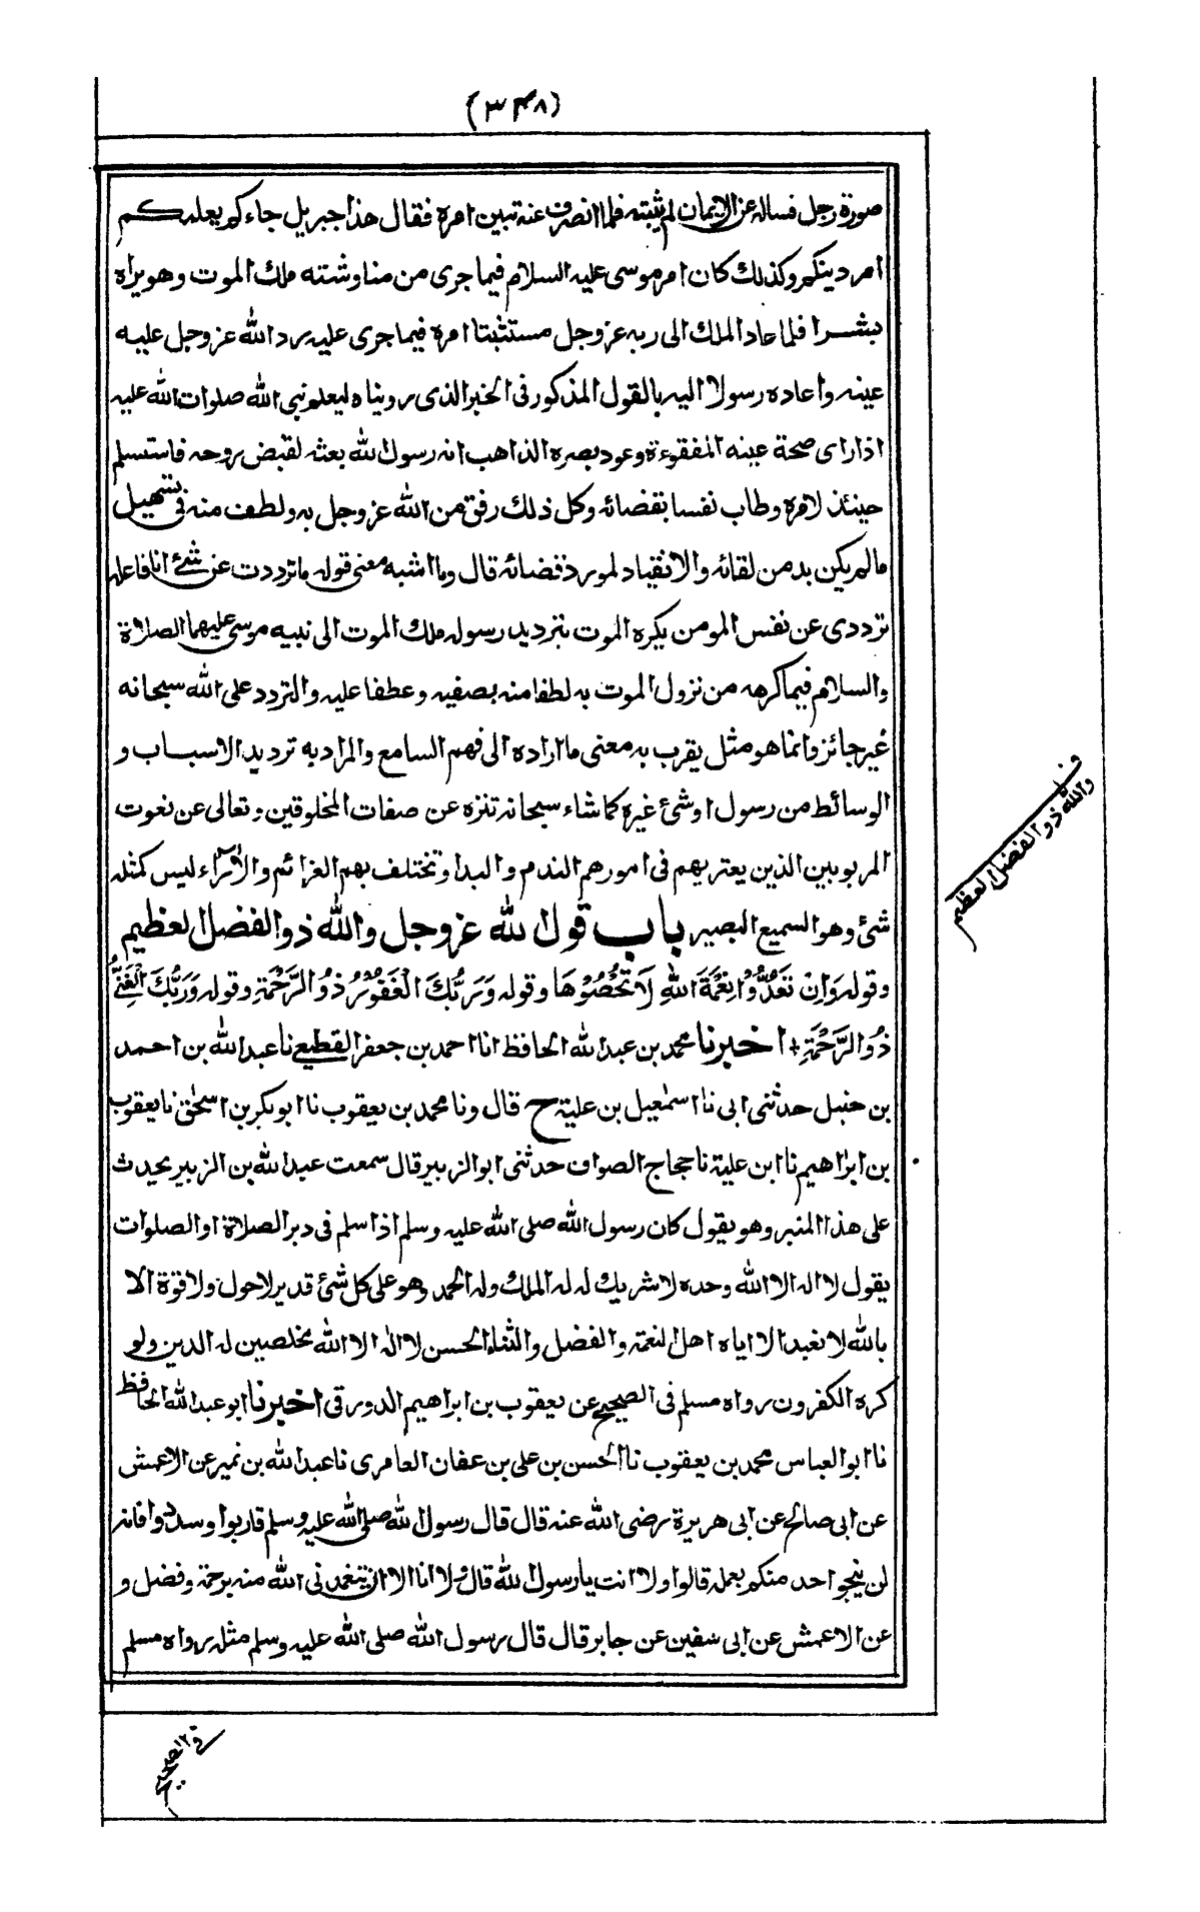 (۳۴۸)
صورة رجل فساله عن الايمان لم يثبته فلما انصرف عنه تبين امره فقال هذا جبريل جاءكم يعلمكم
امر دينكم وكذلك كان امر موسى عليه السلام فيما جرى من مناوشته ملك الموت وهو يراه
بشرا فلما عاد الملك الى ربه عز وجل مستثبتا امره فيما جرى عليه رد الله عز وجل عليه
عينه واعاده رسولا اليه بالقول المذكور فى الخبر الذى رويناه ليعلم نبى الله صلوات الله عليه
اذا راى صحة عينه المفقوءة وعود بصره الذاهب انه رسول الله بعثه لقبض روحه فاستسلم
حينئذ لامره وطاب نفسا بقضائه وكل ذلك رفق من الله عز وجل به ولطف منه فى تسهيل
مالم يكن بد من لقائه والانقياد لمورد قضائه قال وما اشبه معنى قوله ما ترددت عن شئ انا فاعله
ترددى عن نفس المومن يكره الموت بترديد رسوله ملك الموت الى نبيه موسى عليهما الصلاة
والسلام فيما كرهه من نزول الموت به لطفا منه بصفيه وعطفا عليه والتردد على الله سبحانه
غير جائز وانما هو مثل يقرب به معنى ما اراده الى فهم السامع والمراد به ترديد الاسباب و
الوسائط من رسول او شئ غيره كما شاء سبحانه تنزه عن صفات المخلوقين وتعالى عن نعوت
المربوبين الذين يعتريهم فى امورهم الندم والبدا وتختلف بهم العزائم والآراء ليس كمثله
شئ وهو السميع البصير باب قول لله عز وجل والله ذو الفضل العظيم
وقوله وَاِنْ تَعُدُّوْا نِعْمَةَ اللهِ لَا تُحْصُوْهَا وقوله وَرَبُّكَ الْغَفُوْرُ ذُو الرَّحْمَةِ وقوله وَرَبُّكَ الْغَنِىُّ
ذُو الرَّحْمَةِ + اخبرنا محمد بن عبد الله الحافظ انا احمد بن جعفر القطيعى نا عبد الله بن احمد
بن حنبل حدثنى ابى نا اسمٰعيل بن علية ح قال ونا محمد بن يعقوب نا ابو بكر بن اسحٰق نا يعقوب
بن ابراهيم نا ابن علية نا حجاج الصواف حدثنى ابو الزبير قال سمعت عبد الله بن الزبير يحدث
على هذا المنبر وهو يقول كان رسول الله صلى الله عليه وسلم اذا سلم فى دبر الصلاة او الصلوات
يقول لا اله الا الله وحده لا شريك له له الملك وله الحمد وهو على كل شئ قدير لا حول ولا قوة الا
بالله لا نعبد الا اياه اهل النعمة والفضل والثناء الحسن لا اله الا الله مخلصين له الدين ولو
كره الكفرون رواه مسلم فى الصحيح عن يعقوب بن ابراهيم الدورقى اخبرنا ابو عبد الله الحافظ
نا ابو العباس محمد بن يعقوب نا الحسن بن على بن عفان العامرى نا عبد الله بن نمير عن الاعمش
عن ابى صالح عن ابى هريرة رضى الله عنه قال قال رسول الله صلى الله عليه وسلم قاربوا وسددوا فانه
لن ينجو احد منكم بعمله قالوا ولا انت يا رسول الله قال ولا انا الا ان يتغمدنى الله منه برحمة وفضل و
عن الاعمش عن ابى سفين عن جابر قال قال رسول الله صلى الله عليه وسلم مثله رواه مسلم
فـ
والله ذو الفضل العظيم
فى الصحيح